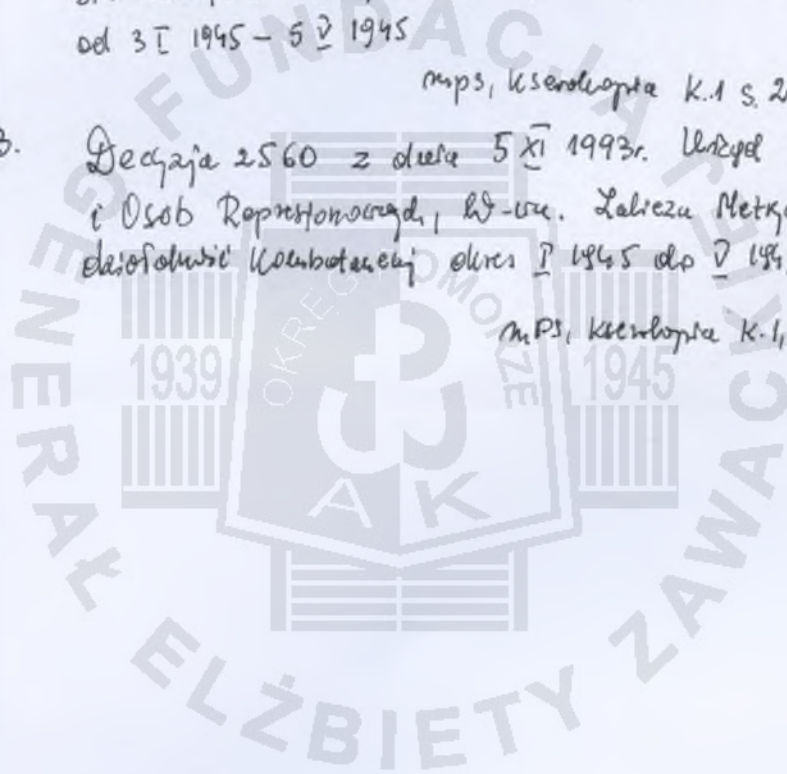 od 3 I 1945 – 5 V 1945
mps, kserokopia K.1 s. 2
3. Decyzja 2560 z dnia 5 XI 1993r. Urząd
i Osób Represjonowanych, W-wa. Zalicza
działalność kombatancką okres I 1945 do V 194
mps, kserokopia K.1,
FUNDACJA GENERAŁ ELŻBIETY ZAWACKIEJ
OKRĘG POMORZE
1939
1945
AK